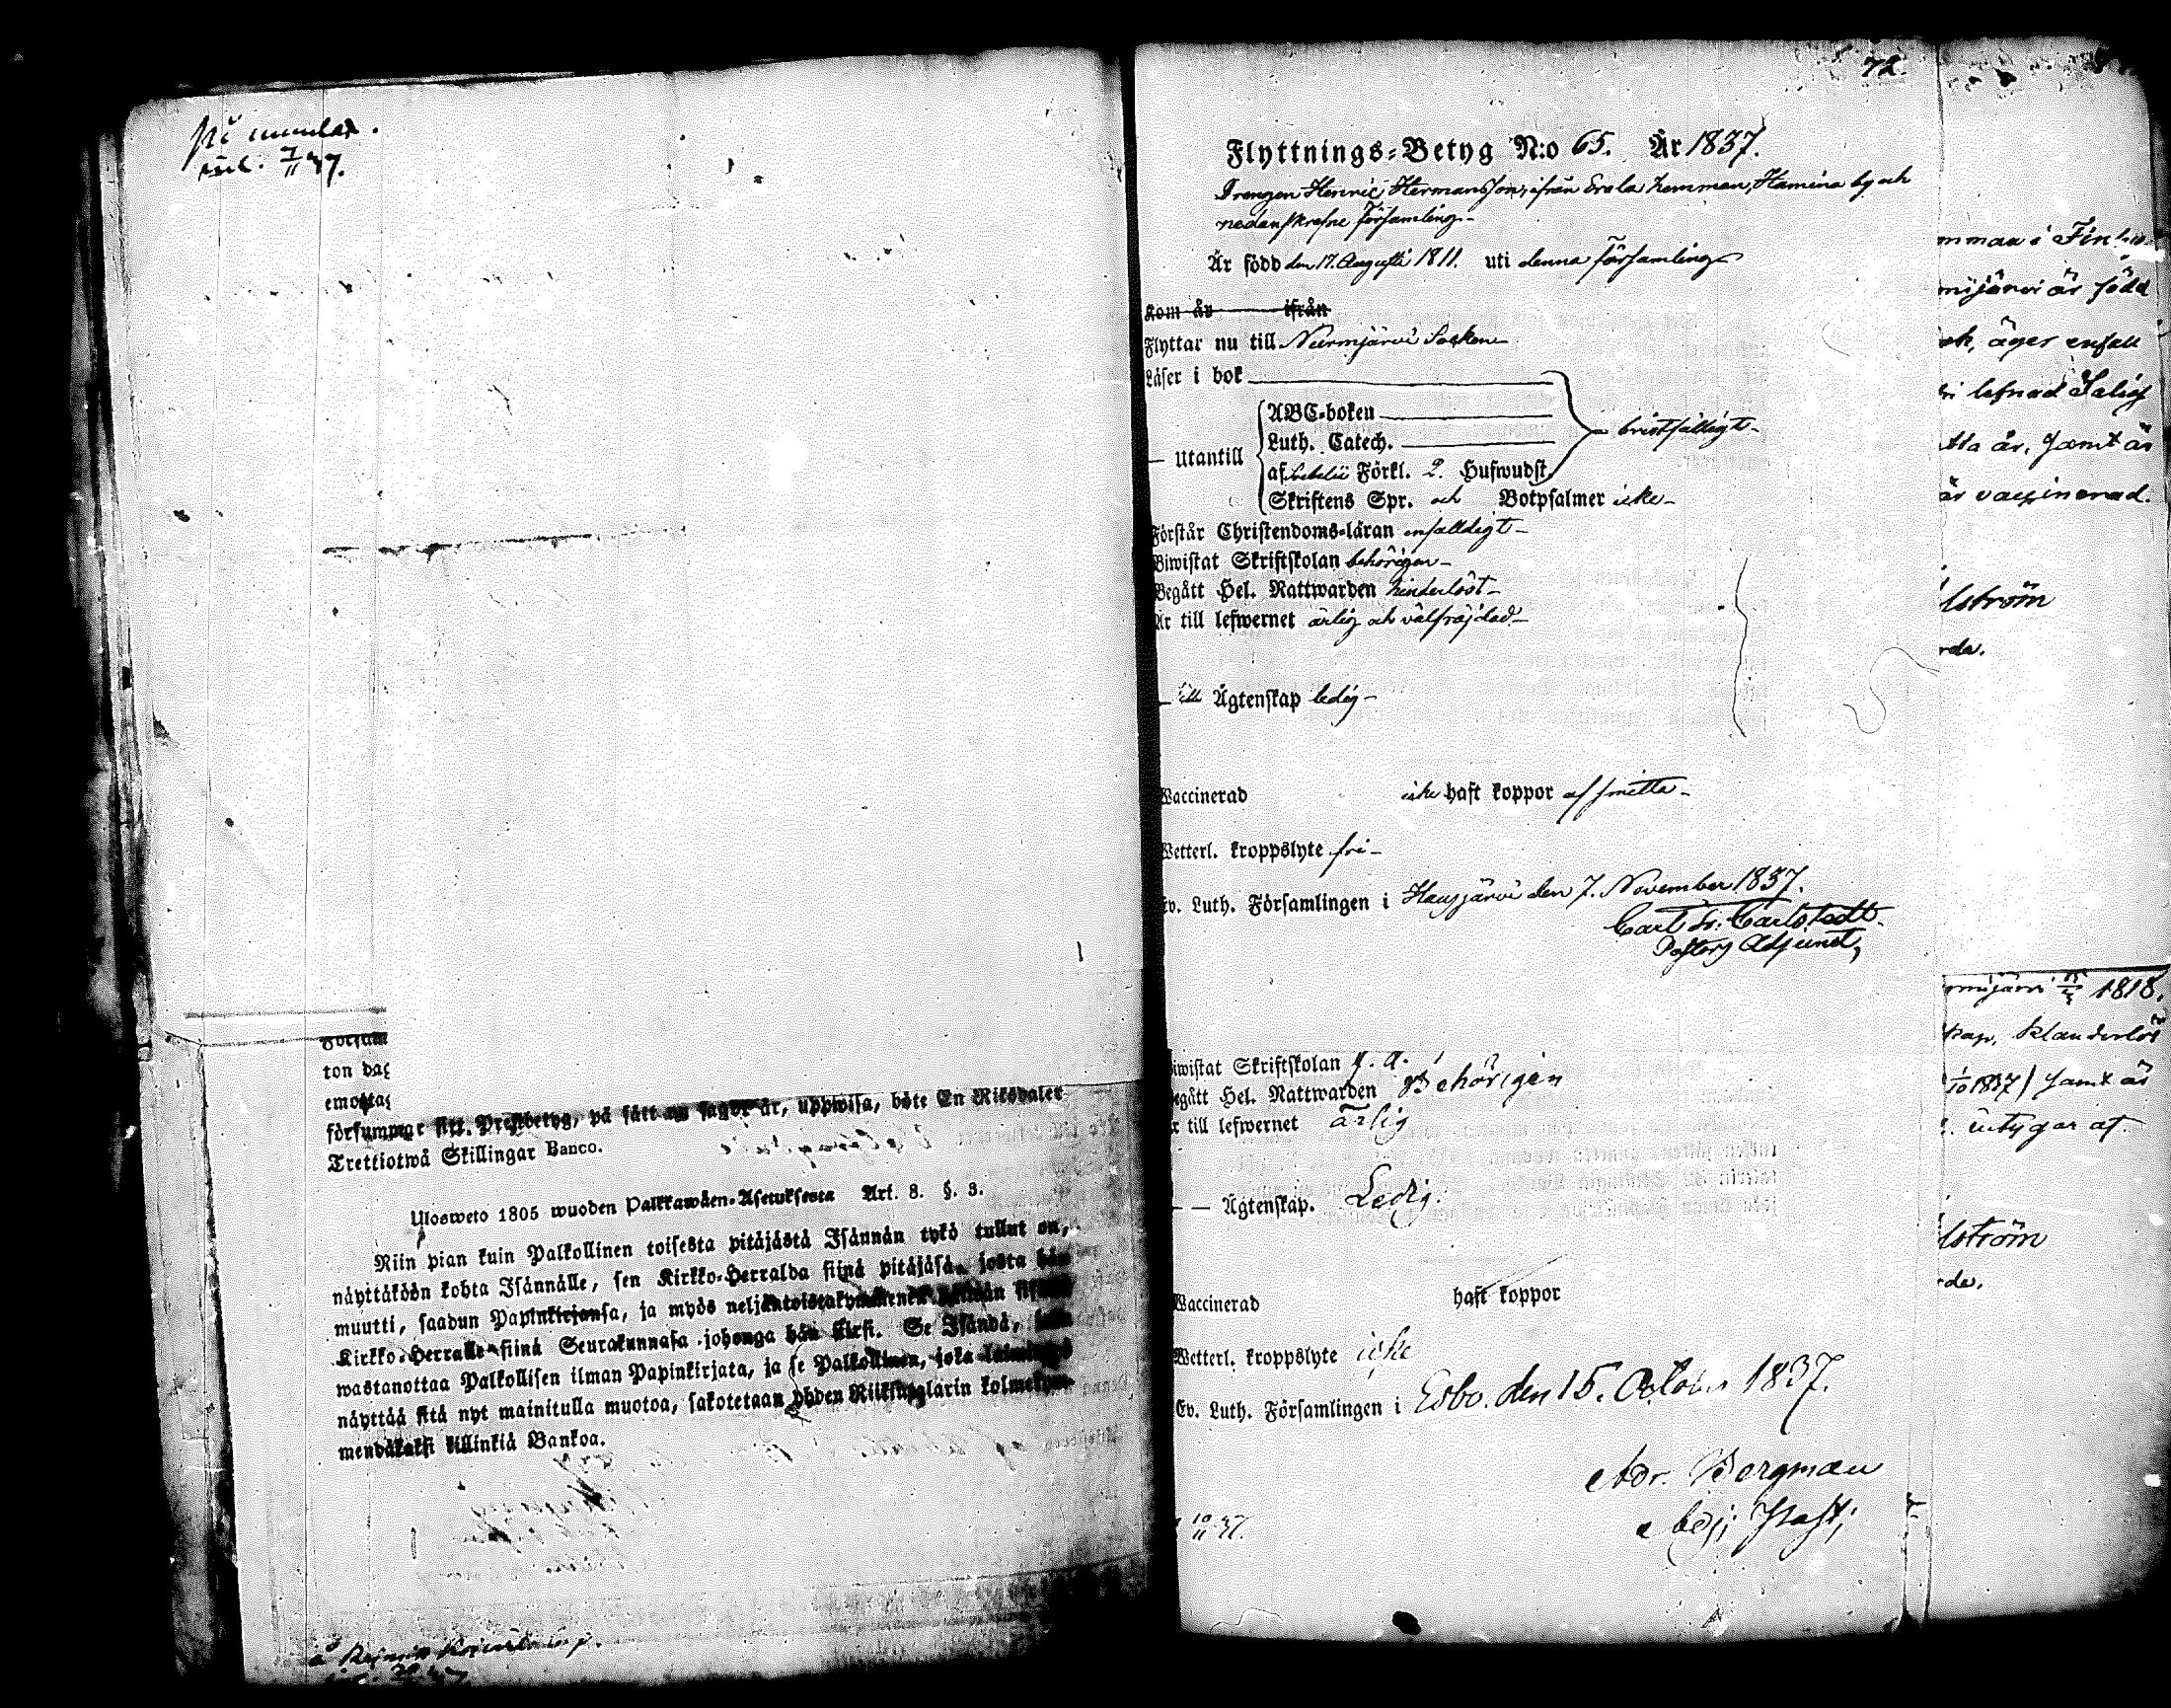 inl. 7/11 37.
Försam
ton dag
emottag
försummar sitt Prestbetyg, på sått nu sagdt år, uppwisa, böte En Riksdaler
Trettiotwå Skillingar Banco.
Ulosweto 1805 wuoden Palkkawåen-Asetuksesta Art. 8. §. 3.
Niin pian kuin Palkollinen toisesta pitåjåstå Isånnån tykö tullut on,
nåyttåköön kohta Isånnålle, sen Kirkko-Herralda siinå pitåjåså, josta hån
muutti, saadun Papinkirjansa, ja myös neljåntoistakymmenen
Kirkko-Herralle siinå Seurakunnasa johonga hån siirsi. Se Isåndå, joka
wastanottaa Palkollisen ilman Papinkirjata, ja se Palkollinen, joka laiminlyö
nåyttåå sitå nyt mainitulla muotoa, sakotetaan yhden Riiksitalarin kolmekym-
mendåkaksi killinkiå Bankoa.
72
Flyttnings-Betyg N:o 65. År 1837.
Drengen Henric Hermansson, ifrån Erola hemman, Hamina by och
nedanskrefne församling-
Är född den 17. Augusti 1811. uti denna församling
Kom år ifrån
Flyttar nu till Nurmijärvi Socken
Läser i bok
ABC-boken
Luth. Catech.
bristfälligt-
— Utantill
af Förkl. 2. Hufwudst.
Skriftens Spr. och Botpsalmer icke-
Förstår Christendoms-läran enfaldigt-
Biwistat Skriftskolan behörigen-
Begått Hel. Nattwarden hinderlöst-
Är till lefwernet ärlig och välfräjdad-
— till Ägtenskap ledig-
Vaccinerad icke haft koppor af smitta-
Wetterl. kroppslyte fri-
Ev. Luth. Församlingen i Hausjärvi den 7. November 1837.
Carl Fr: Carlstedt.
Pastors Adjunct,
Biwistat Skriftskolan
Begått Hel. Nattwarden Behörigen
Är till lefwernet ärlig
— — Ägtenskap. Ledig.
Vaccinerad haft koppor
Wetterl. kroppslyte icke
Ev. Luth. Församlingen i Esbo. den 15. October 1837.
Adr. Bergman
Adj: Past;
10/11 37.
mman i Finby
mijärvi är född
ok, äger enfall
lefnad Salig
åtta år, samt är
är vaccinerad.
lström
rda.
rmijärvi 1818.
skap, klanderlös
1/10 1837) samt är
. intygar af
lström
rda.